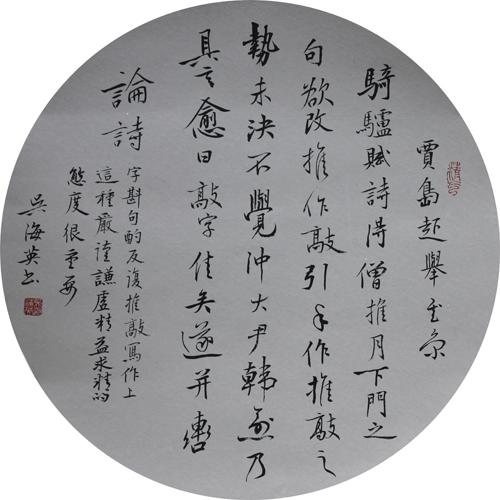 賈島赴舉至京
騎驢賦詩得僧推月下門之
句欲改推作敲引手作推敲之
勢未決不覺沖大尹韓愈乃
具言愈曰敲字佳矣遂并轡
論詩
字斟句酌反復推敲寫作上
這種嚴謹謙虛精益求精的
態度很重要
吳海英書